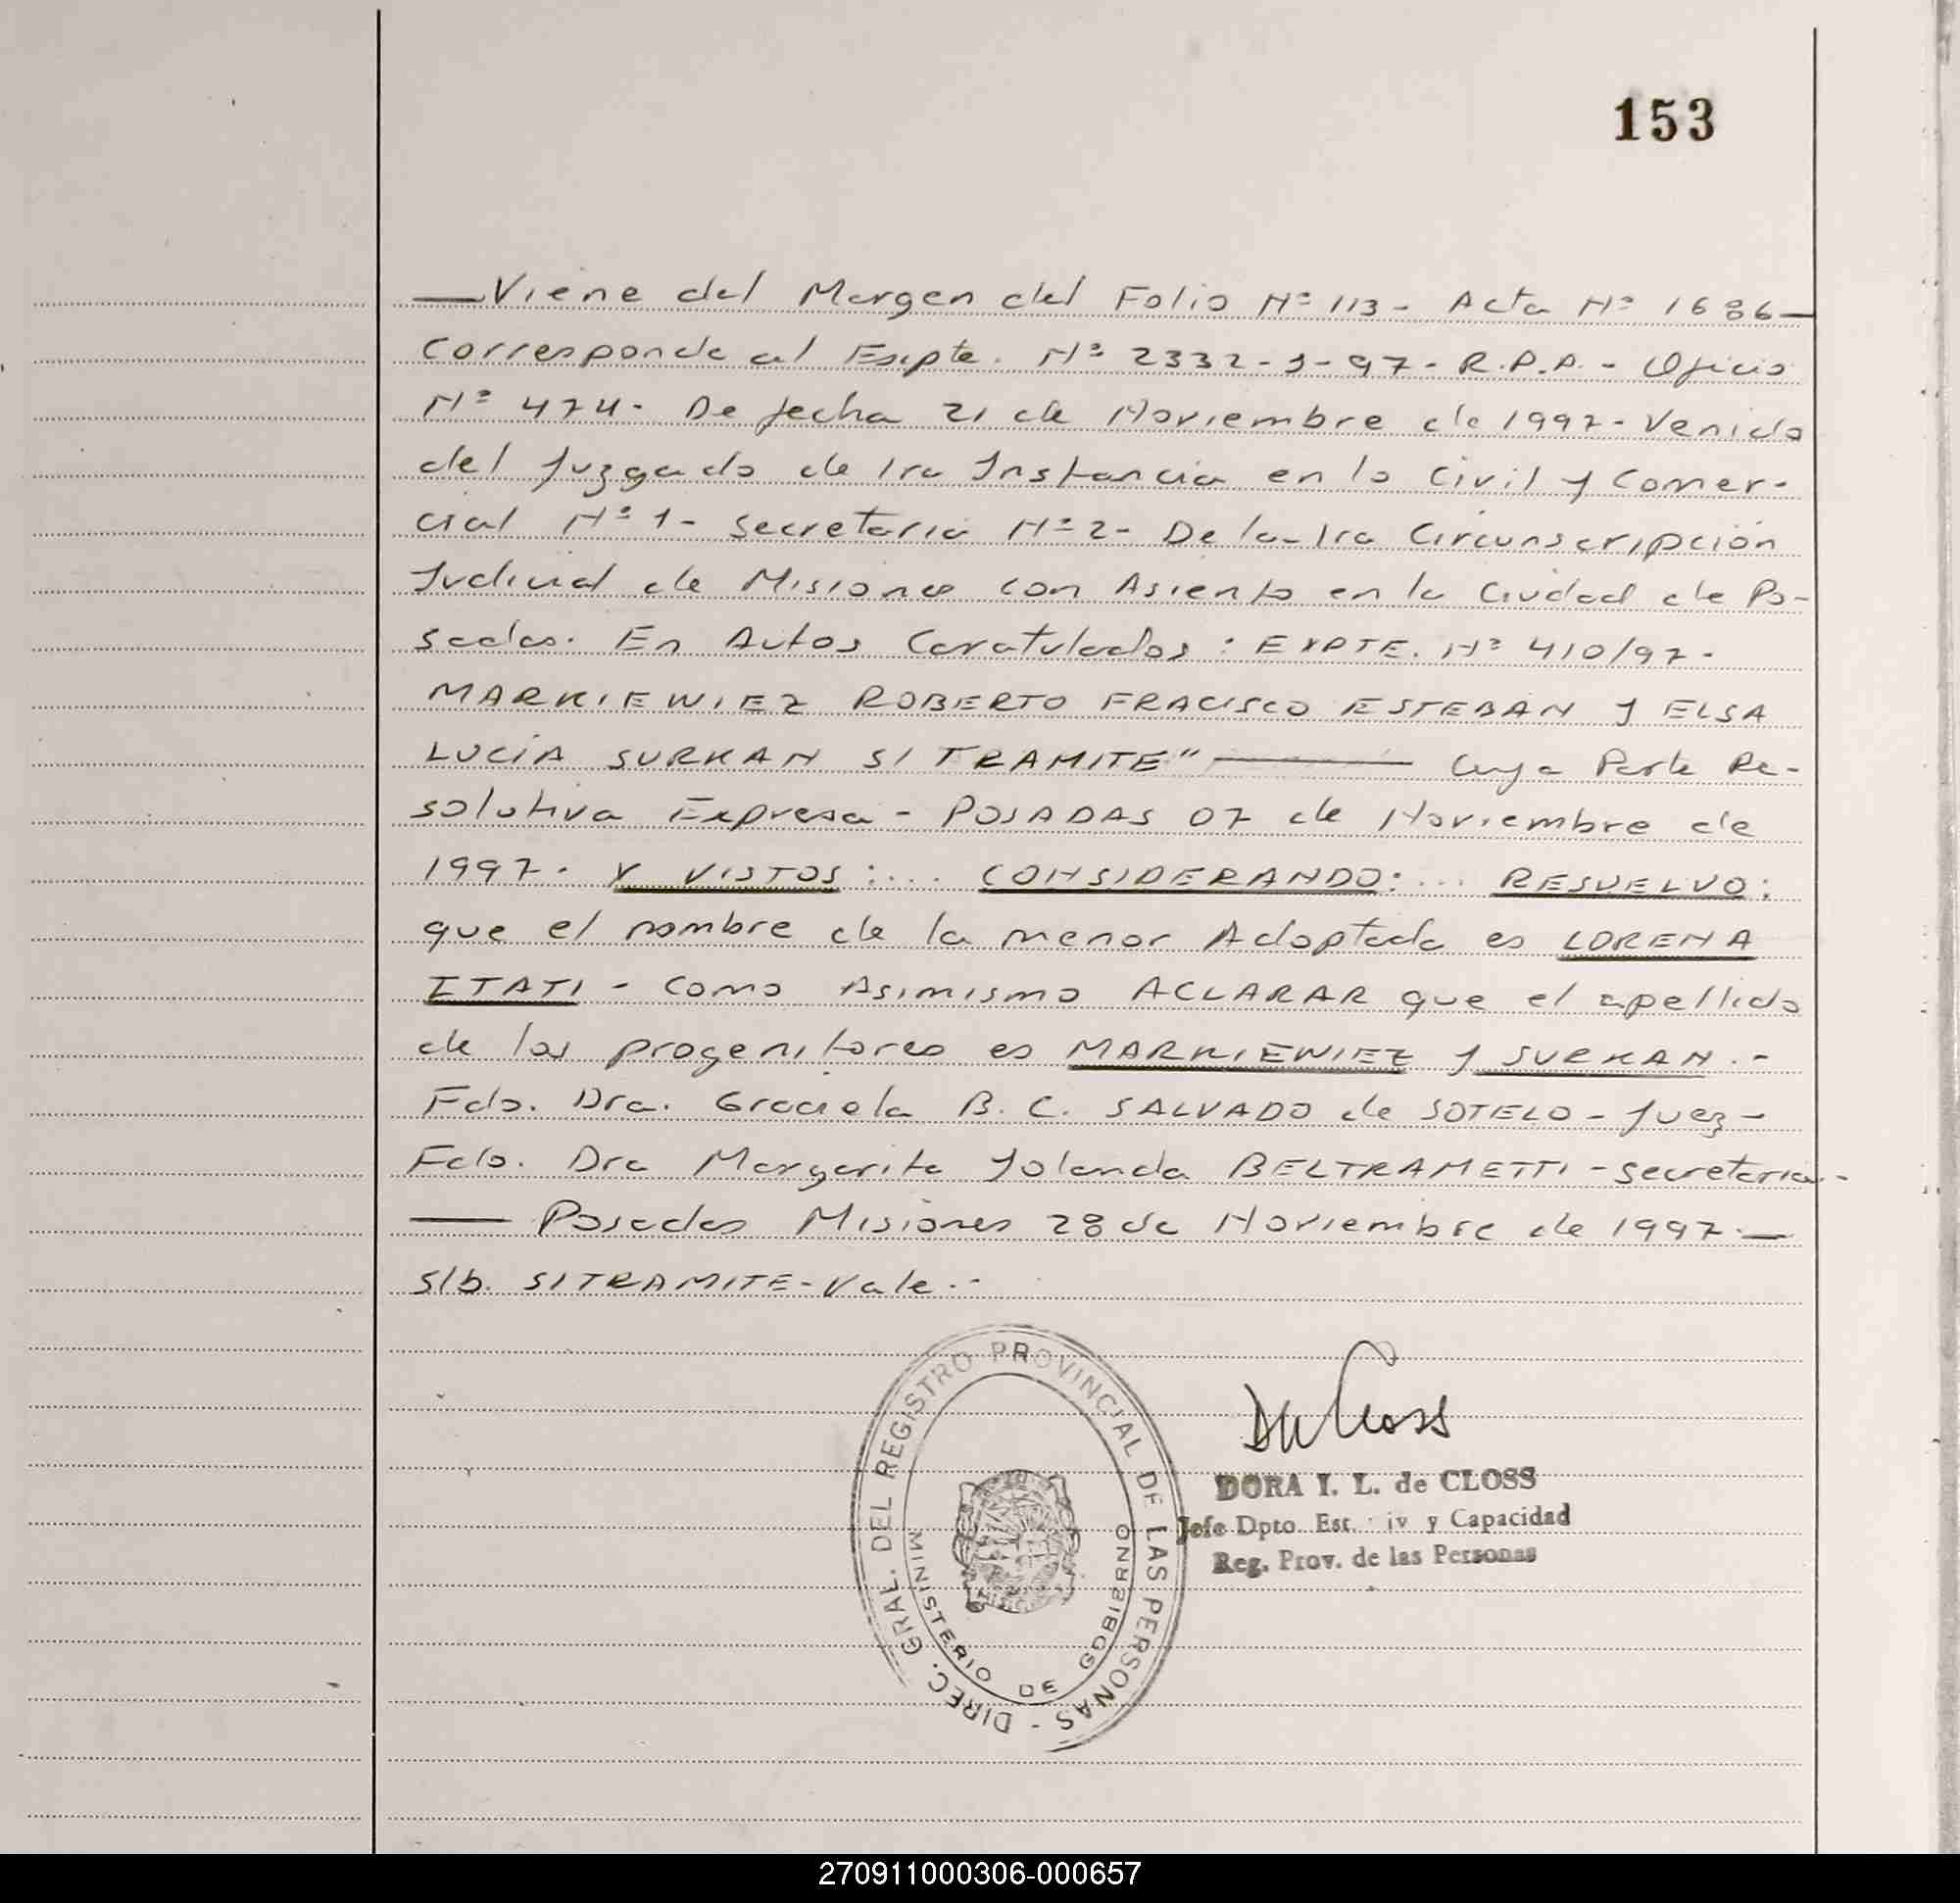 153
— Viene del Margen del Folio Nº 113 - Acta Nº 1686 —
Corresponde al Expte. Nº 2332-J-97 - R.P.P. - Oficio
Nº 474 - De fecha 21 de Noviembre de 1997 - Venido
del Juzgado de 1ra Instancia en lo Civil y Comer-
cial Nº 1 - Secretaria Nº 2 - De la 1ra Circunscripción
Judicial de Misiones con Asiento en la Ciudad de Po-
sadas. En Autos Caratulados: EXPTE. Nº 410/97 -
MARKIEWIEZ ROBERTO FRACISCO ESTEBAN Y ELSA
LUCÍA SURKAN S/ TRAMITE" ——— Cuya Parte Re-
solutiva Expresa - POSADAS 07 de Noviembre de
1997. Y VISTOS:... CONSIDERANDO:... RESUELVO:
que el nombre de la menor Adoptada es LORENA
ITATI - Como Asimismo ACLARAR que el apellido
de los progenitores es MARKIEWIEZ y SURKAN. -
Fdo. Dra. Graciela B. C. SALVADO de SOTELO - Juez -
Fdo. Dra Margarita Yolanda BELTRAMETTI - Secretaria -
— Posadas Misiones 28 de Noviembre de 1997. —
S/b. S/TRAMITE - Vale. -
DIREC. GRAL. DEL REGISTRO PROVINCIAL DE LAS PERSONAS -
MINISTERIO DE GOBIERNO
DORA I. L. de CLOSS
Jefe Dpto. Est. iv y Capacidad
Reg. Prov. de las Personas
270911000306-000657